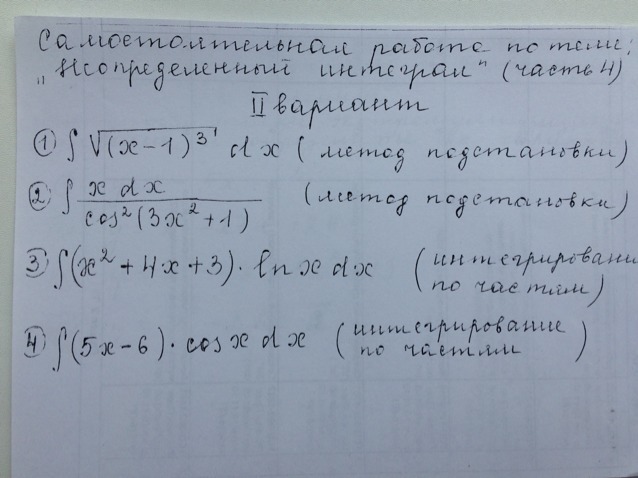 Самостоятельная работа по теме:
"Неопределенный интеграл" (часть 4)
II вариант
① ∫ √(x-1)³ dx ( метод подстановки)
② ∫ x dx / cos²(3x²+1) (метод подстановки)
③ ∫(x²+4x+3)·ln x dx (интегрирование по частям)
④ ∫(5x-6)·cos x dx (интегрирование по частям)